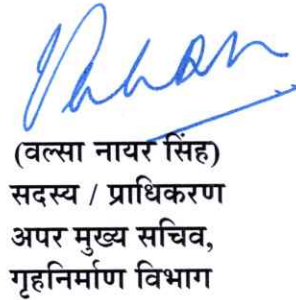 (वल्सा नायर सिंह)
सदस्य / प्राधिकरण
अपर मुख्य सचिव,
गृहनिर्माण विभाग